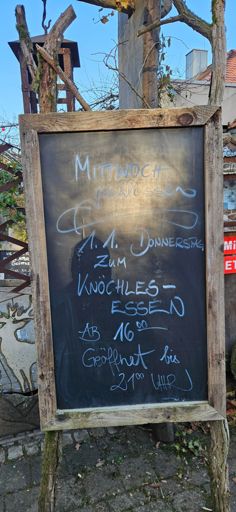 MITTWOCH
1. 1. DONNERSTAG
ZUM
KNÖCHLES-
ESSEN
AB 16⁰⁰
GEÖFFNET bis
21⁰⁰ UHR